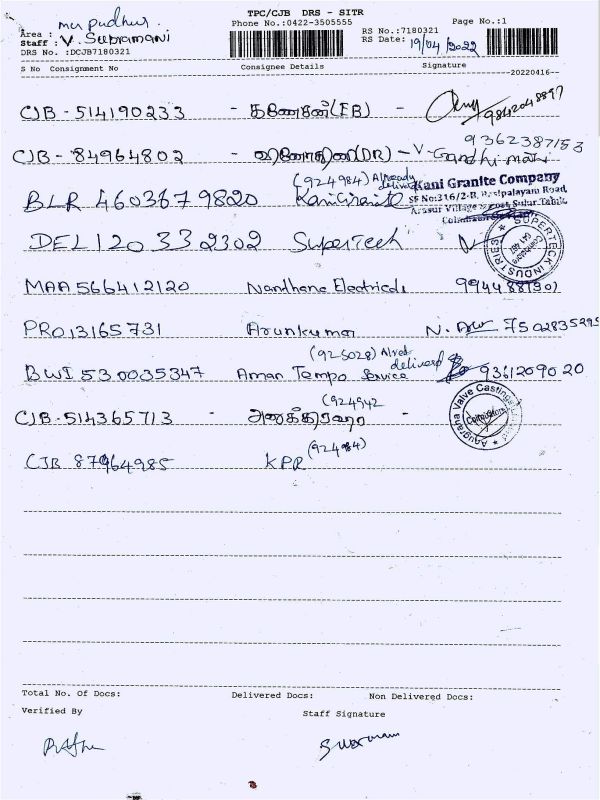 TPC/CJB DRS - SITR
Phone No.:0422-3505555
Page No.:1
Area : mu pudhur.
RS No.:7180321
Staff : V. Subramani
RS Date: 19/04/2022
DRS No. :DCJB7180321
S No Consignment No Consignee Details Signature
20220416
CJB - 514190233 - கணேசன்(EB) - 9842048897
CJB - 84964802 - வினோதினி(DR) - V. Gandhimathi 9362387153
(924984) Already delivered
BLR 4603679820 Kani Granite
Kani Granite Company
SF No:316/2-B,
Arasur Village Post Sulur Taluk,
DEL 120332302 Supertech
SUPERTECK INDUSTRIES
Coimbatore
641 407
MAA 566412120 Nandhana Electricals 9944887301
PRO 13165731 Arunkumar N. 7502835295
(925028) Alred delivered
BWI 530035347 Aman Tempo Service 9361209020
(924942
CJB - 514365713 - அனுக்கிரஹா -
Anugraha Valve Castings
(924984)
CJB 87964985 KPR
Total No. Of Docs: Delivered Docs: Non Delivered Docs:
Verified By Staff Signature